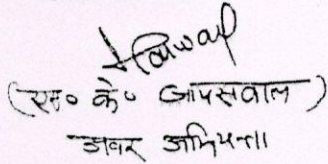 (एस० के० जायसवाल)
अवर अभियन्ता